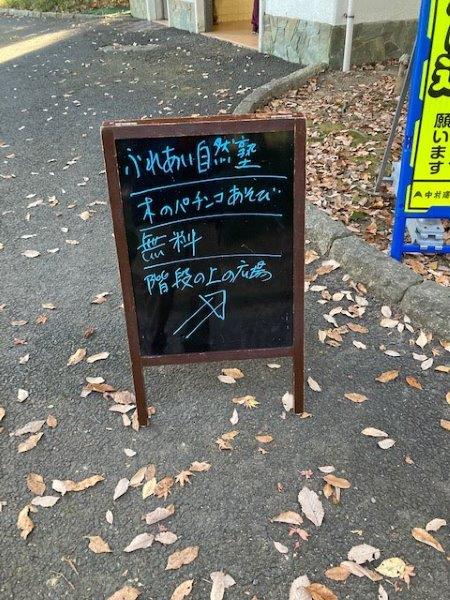 ふれあい自然塾
木のパチンコあそび
無料
階段の上の広場
願います